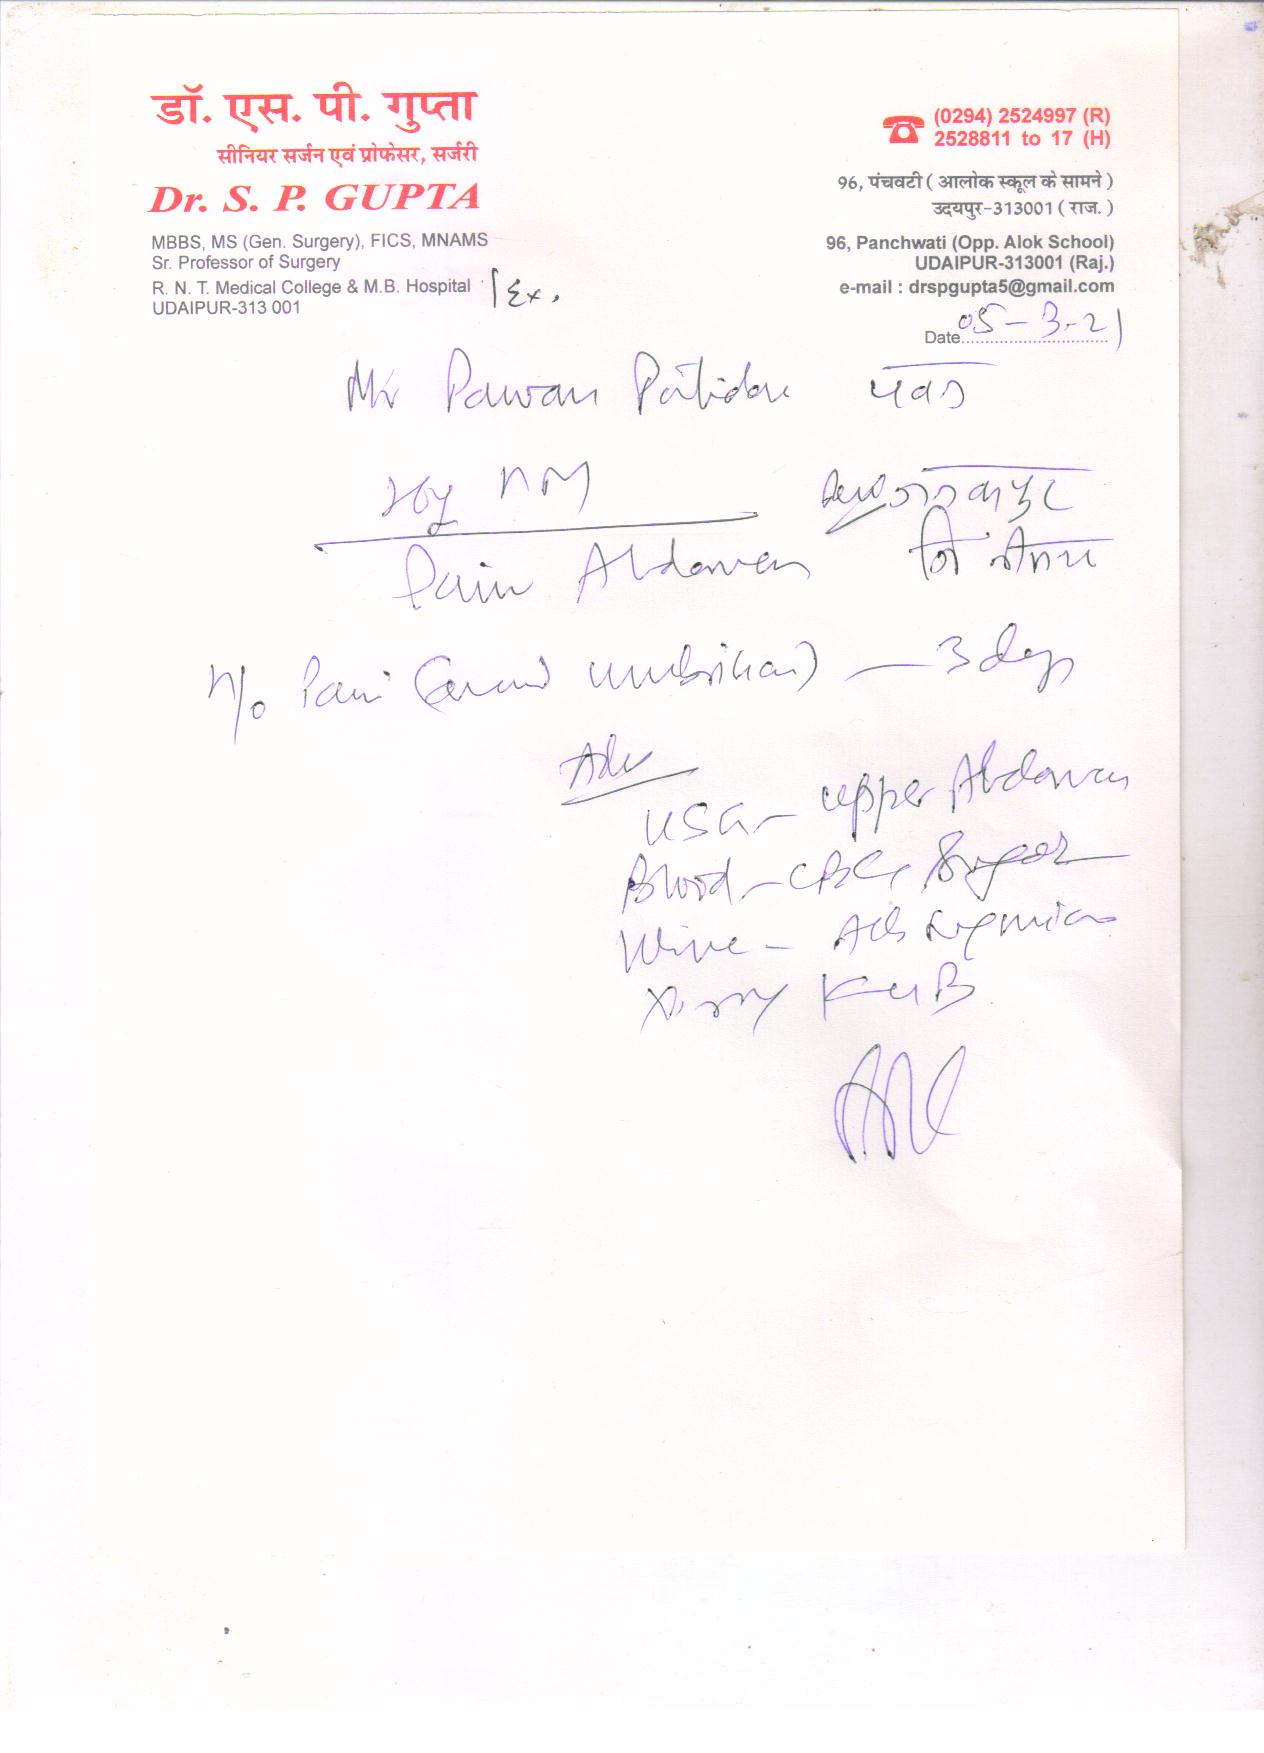 डॉ. एस. पी. गुप्ता
सीनियर सर्जन एवं प्रोफेसर, सर्जरी
Dr. S. P. GUPTA
MBBS, MS (Gen. Surgery), FICS, MNAMS
Sr. Professor of Surgery
R. N. T. Medical College & M.B. Hospital | Ex.
UDAIPUR-313 001
(0294) 2524997 (R)
2528811 to 17 (H)
96, पंचवटी ( आलोक स्कूल के सामने )
उदयपुर-313001 ( राज. )
96, Panchwati (Opp. Alok School)
UDAIPUR-313001 (Raj.)
e-mail : drspgupta5@gmail.com
Date 05-3-21
Mr Pawan Patidar
Pain Abdomen
H/o Pain (around umbilical) — 3 days
Adv
USG - upper Abdomen
Blood - CBC, Sugar
Urine -
X-ray KUB